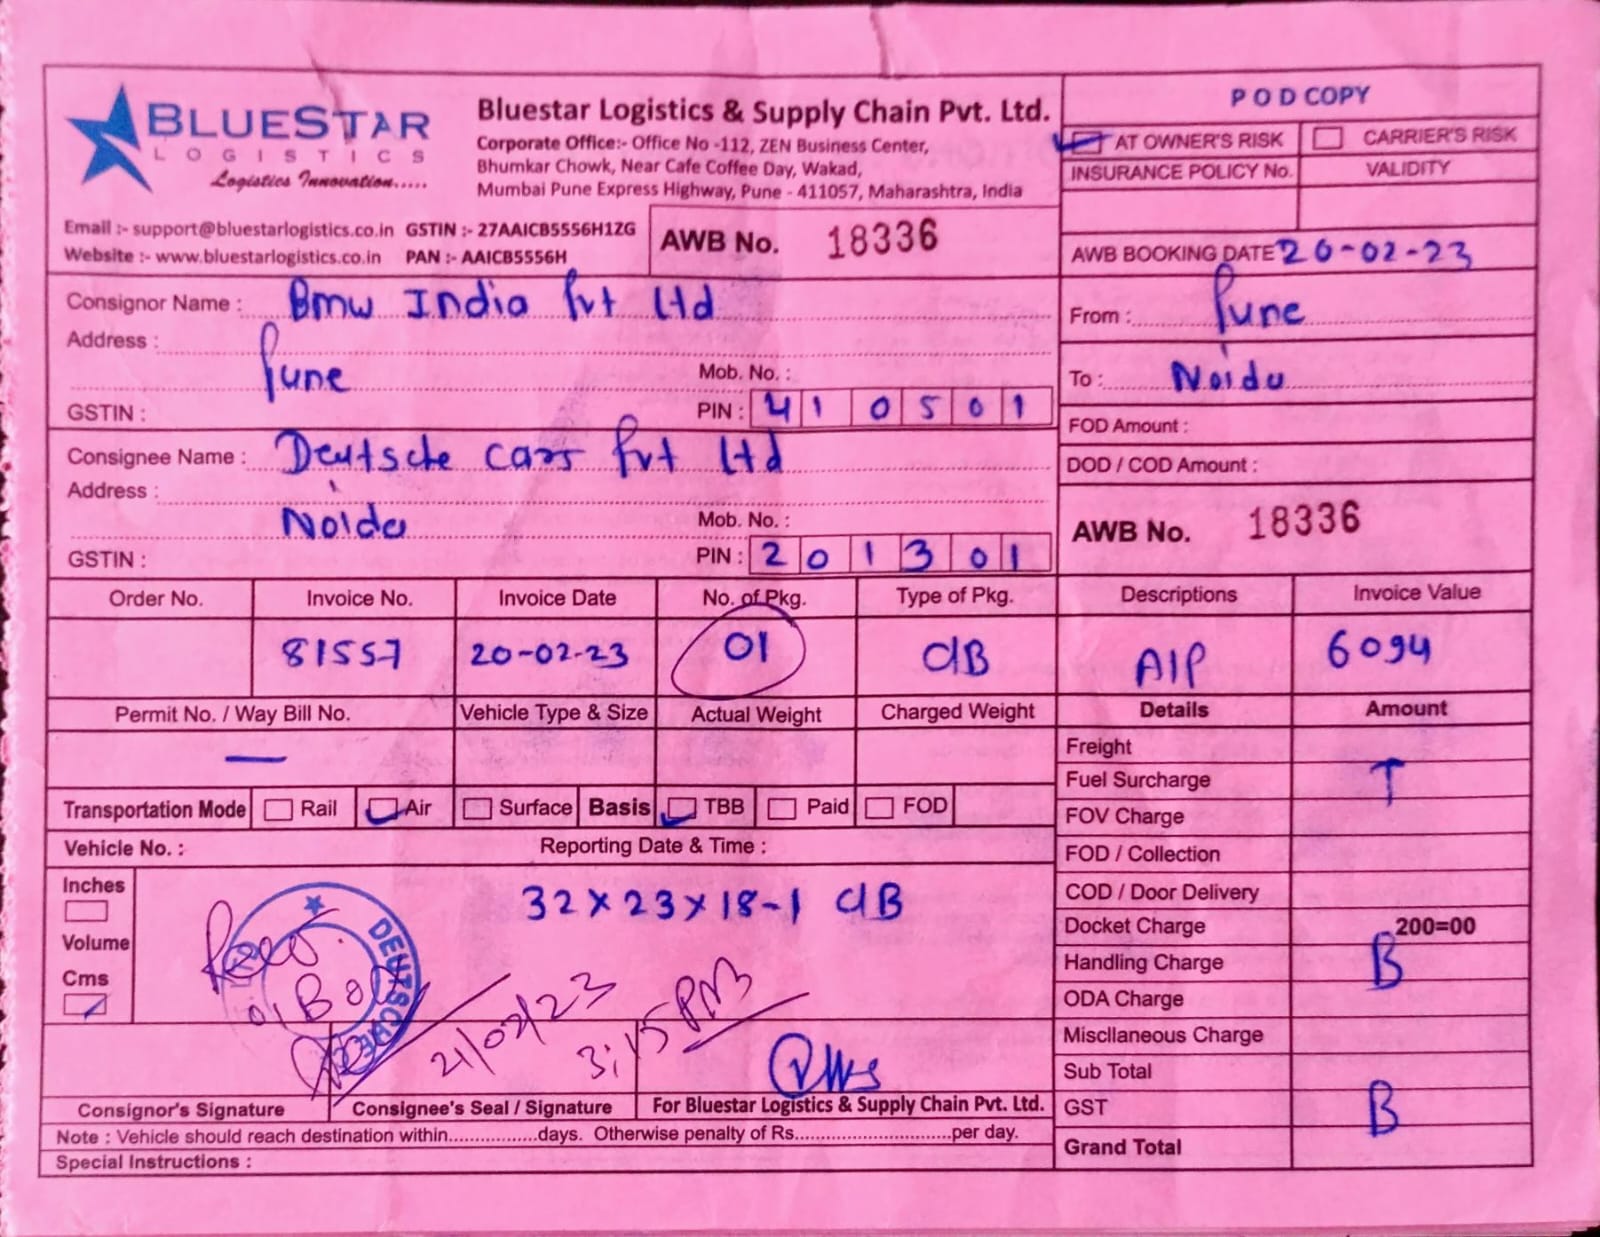 BLUESTAR
LOGISTICS
Logistics Innovation.....
Bluestar Logistics & Supply Chain Pvt. Ltd.
Corporate Office:- Office No -112, ZEN Business Center,
Bhumkar Chowk, Near Cafe Coffee Day, Wakad,
Mumbai Pune Express Highway, Pune - 411057, Maharashtra, India
Email :- support@bluestarlogistics.co.in GSTIN :- 27AAICB5556H1ZG
Website :- www.bluestarlogistics.co.in PAN :- AAICB5556H
AWB No. 18336
POD COPY
AT OWNER'S RISK CARRIER'S RISK
INSURANCE POLICY No. VALIDITY
AWB BOOKING DATE 20-02-23
Consignor Name : Bmw India Pvt Ltd
Address :
Pune Mob. No. :
GSTIN : PIN : 410501
From : Pune
To : Noida
FOD Amount :
DOD / COD Amount :
Consignee Name : Deutsche cars Pvt Ltd
Address :
Noida Mob. No. :
GSTIN : PIN : 201301
AWB No. 18336
Order No. Invoice No. Invoice Date No. of Pkg. Type of Pkg. Descriptions Invoice Value
81557 20-02-23 01 CIB AIP 6094
Permit No. / Way Bill No. Vehicle Type & Size Actual Weight Charged Weight Details Amount
—
Transportation Mode Rail Air Surface Basis TBB Paid FOD
Vehicle No. : Reporting Date & Time :
Freight
Fuel Surcharge T
FOV Charge
FOD / Collection
COD / Door Delivery
Docket Charge 200=00
Handling Charge B
ODA Charge
Miscllaneous Charge
Sub Total
GST B
Grand Total
Inches
Volume
Cms
32 x 23 x 18-1 CIB
DEUTSCHE
01 Box
21/02/23
3:15 PM
Consignor's Signature Consignee's Seal / Signature For Bluestar Logistics & Supply Chain Pvt. Ltd.
Note : Vehicle should reach destination within.................days. Otherwise penalty of Rs.............................per day.
Special Instructions :